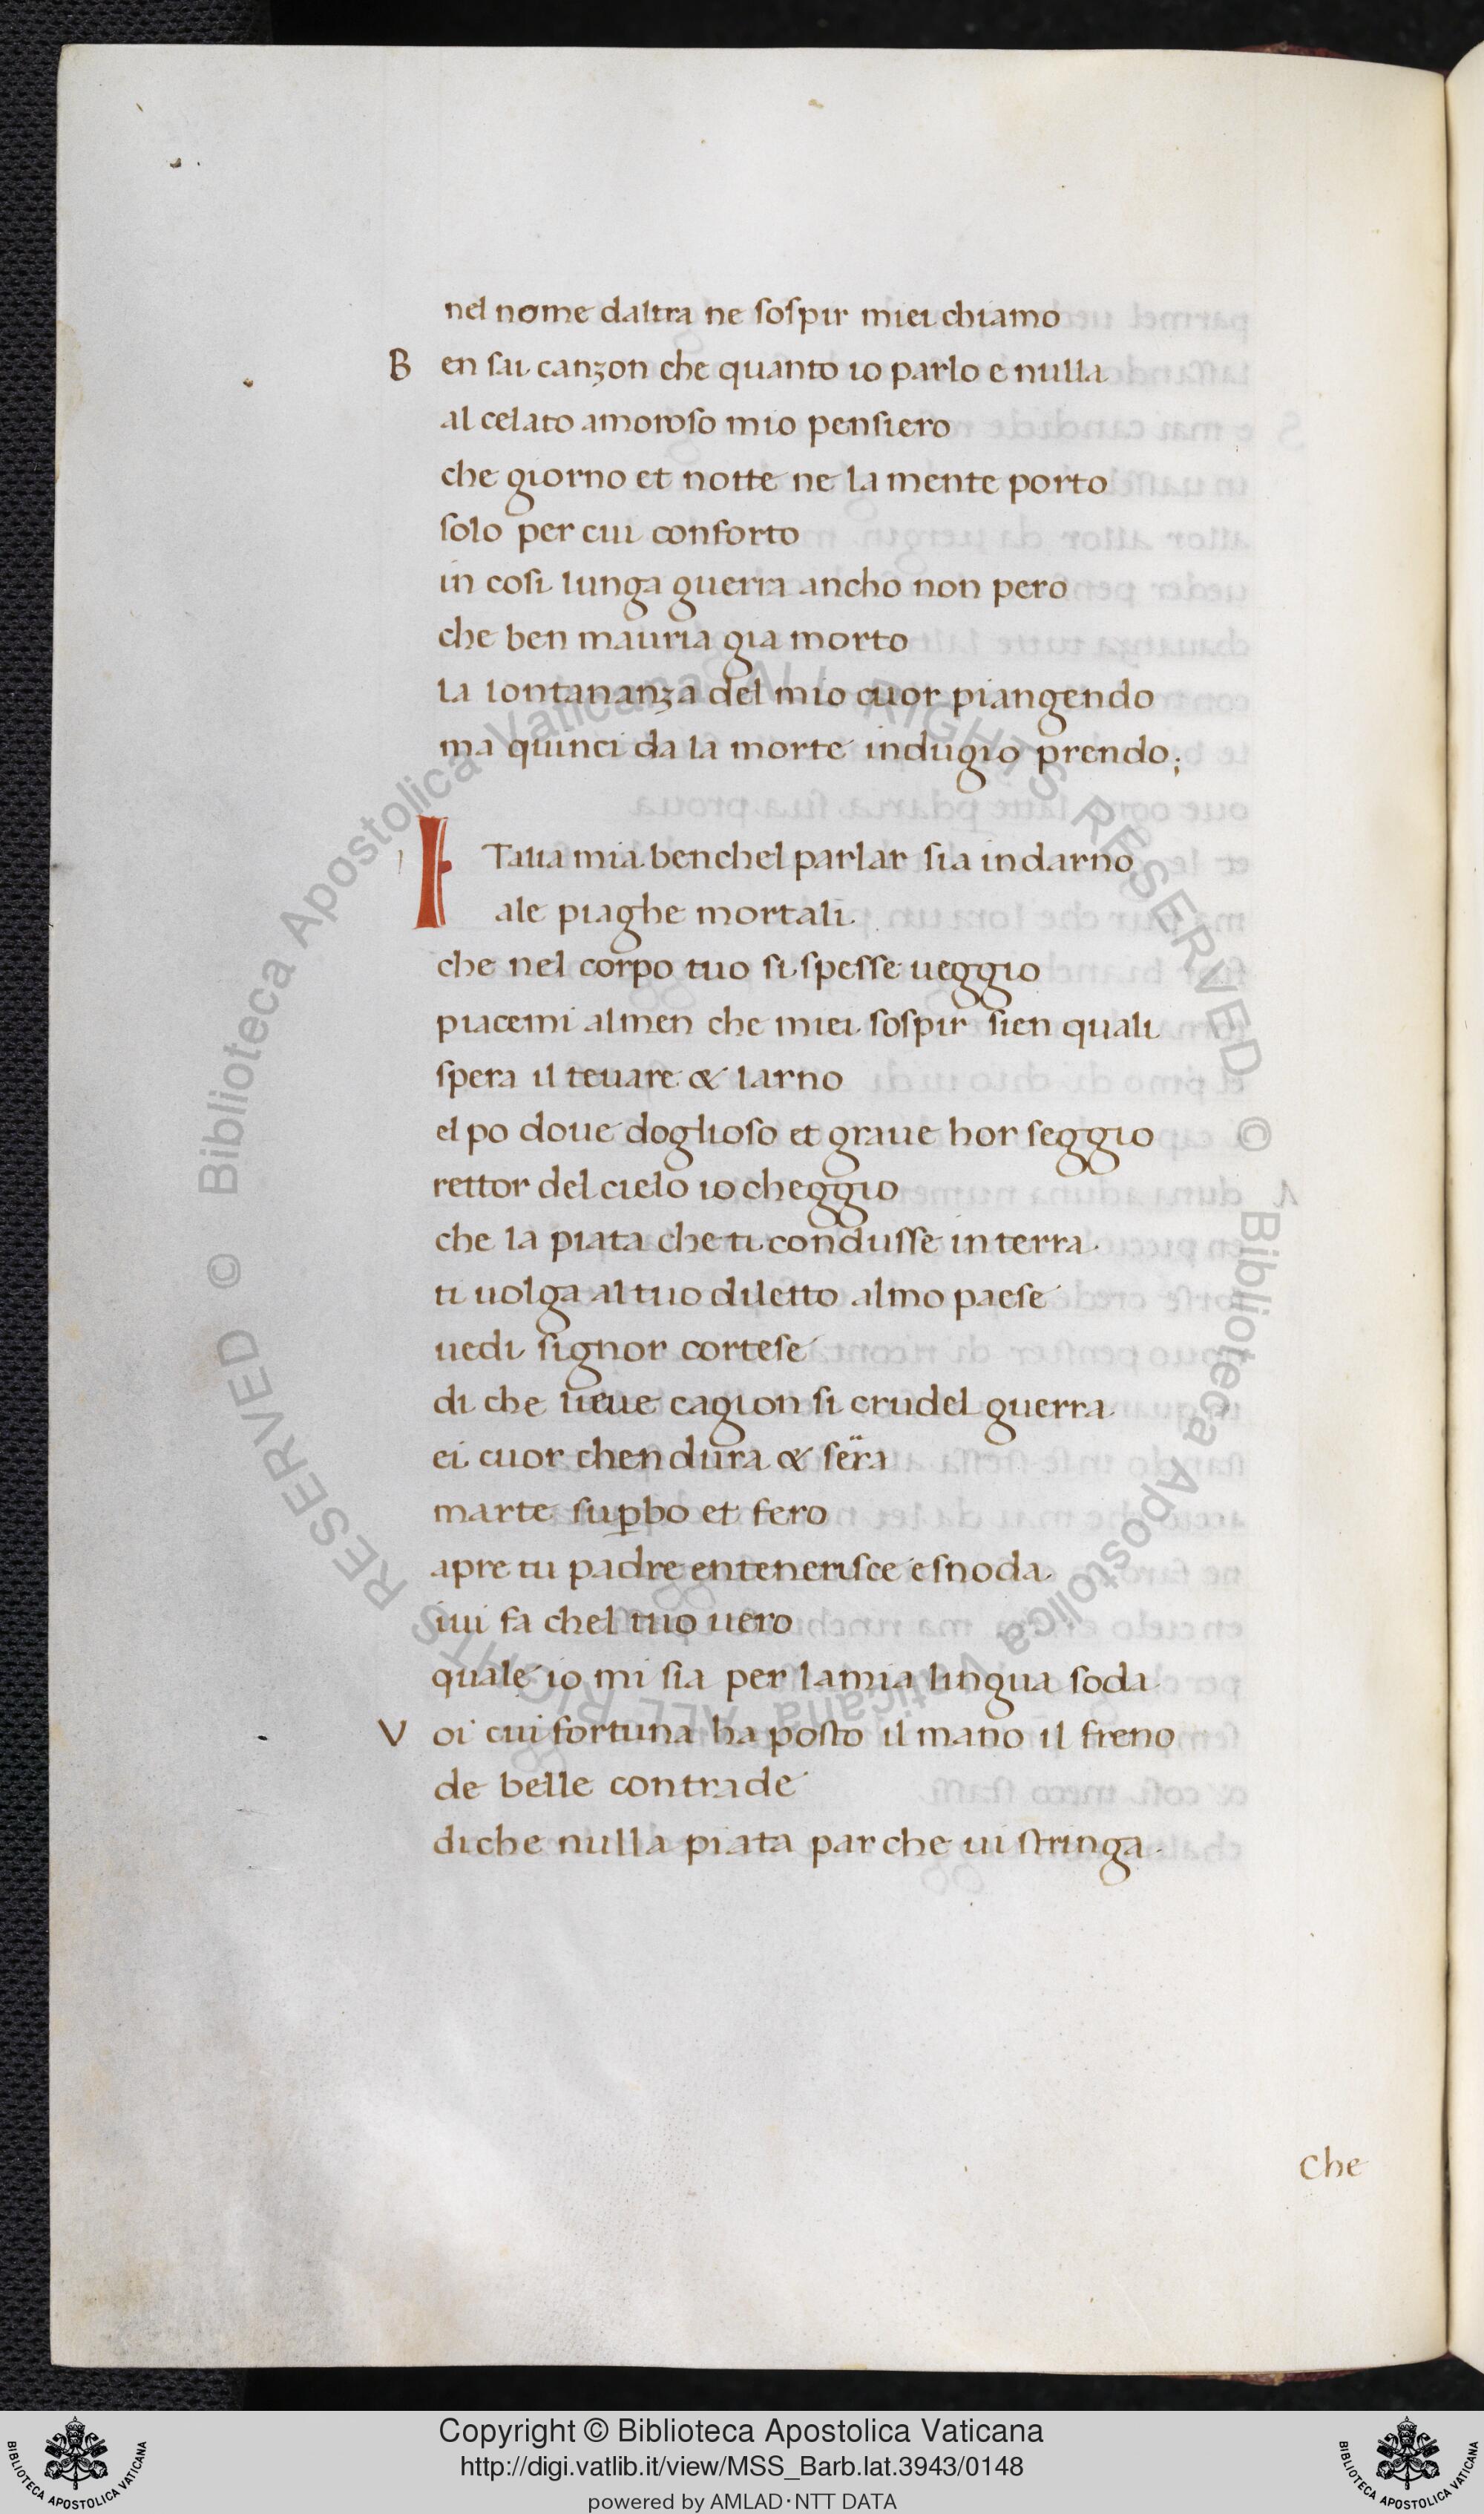 nel nome daltra ne sospir miei chiamo
B en sai canzon che quanto io parlo e nulla
al celato amoroso mio pensiero
che giorno et notte ne la mente porto
solo per cui conforto
in cosi lunga guerra ancho non pero
che ben mauria gia morto
la lontananza del mio cuor piangendo
ma quinci da la morte indugio prendo;
I Talia mia benchel parlar sia indarno
ale piaghe mortali.
che nel corpo tuo si spesse ueggio
piacemi almen che miei sospir sien quali
spera il teuare & larno
el po doue doglioso et graue hor seggio
rettor del cielo io cheggio
che la piata che ti condusse in terra.
ti uolga al tuo diletto almo paese
uedi signor cortese
di che lieue cagion si crudel guerra
ei cuor chendura & serra
marte suꝑbo et fero
apre tu padre entenerisce esnoda.
iui fa chel tuo uero
quale io mi sia per lamia lingua soda
V oi cui fortuna ha posto il mano il freno
de belle contrade
diche nulla piata par che ui stringa.
Che
© Biblioteca Apostolica Vaticana ALL RIGHTS RESERVED © Biblioteca Apostolica Vaticana ALL RIGHTS RESERVED
Copyright © Biblioteca Apostolica Vaticana
http://digi.vatlib.it/view/MSS_Barb.lat.3943/0148
powered by AMLAD·NTT DATA
BIBLIOTECA APOSTOLICA VATICANA
BIBLIOTECA APOSTOLICA VATICANA